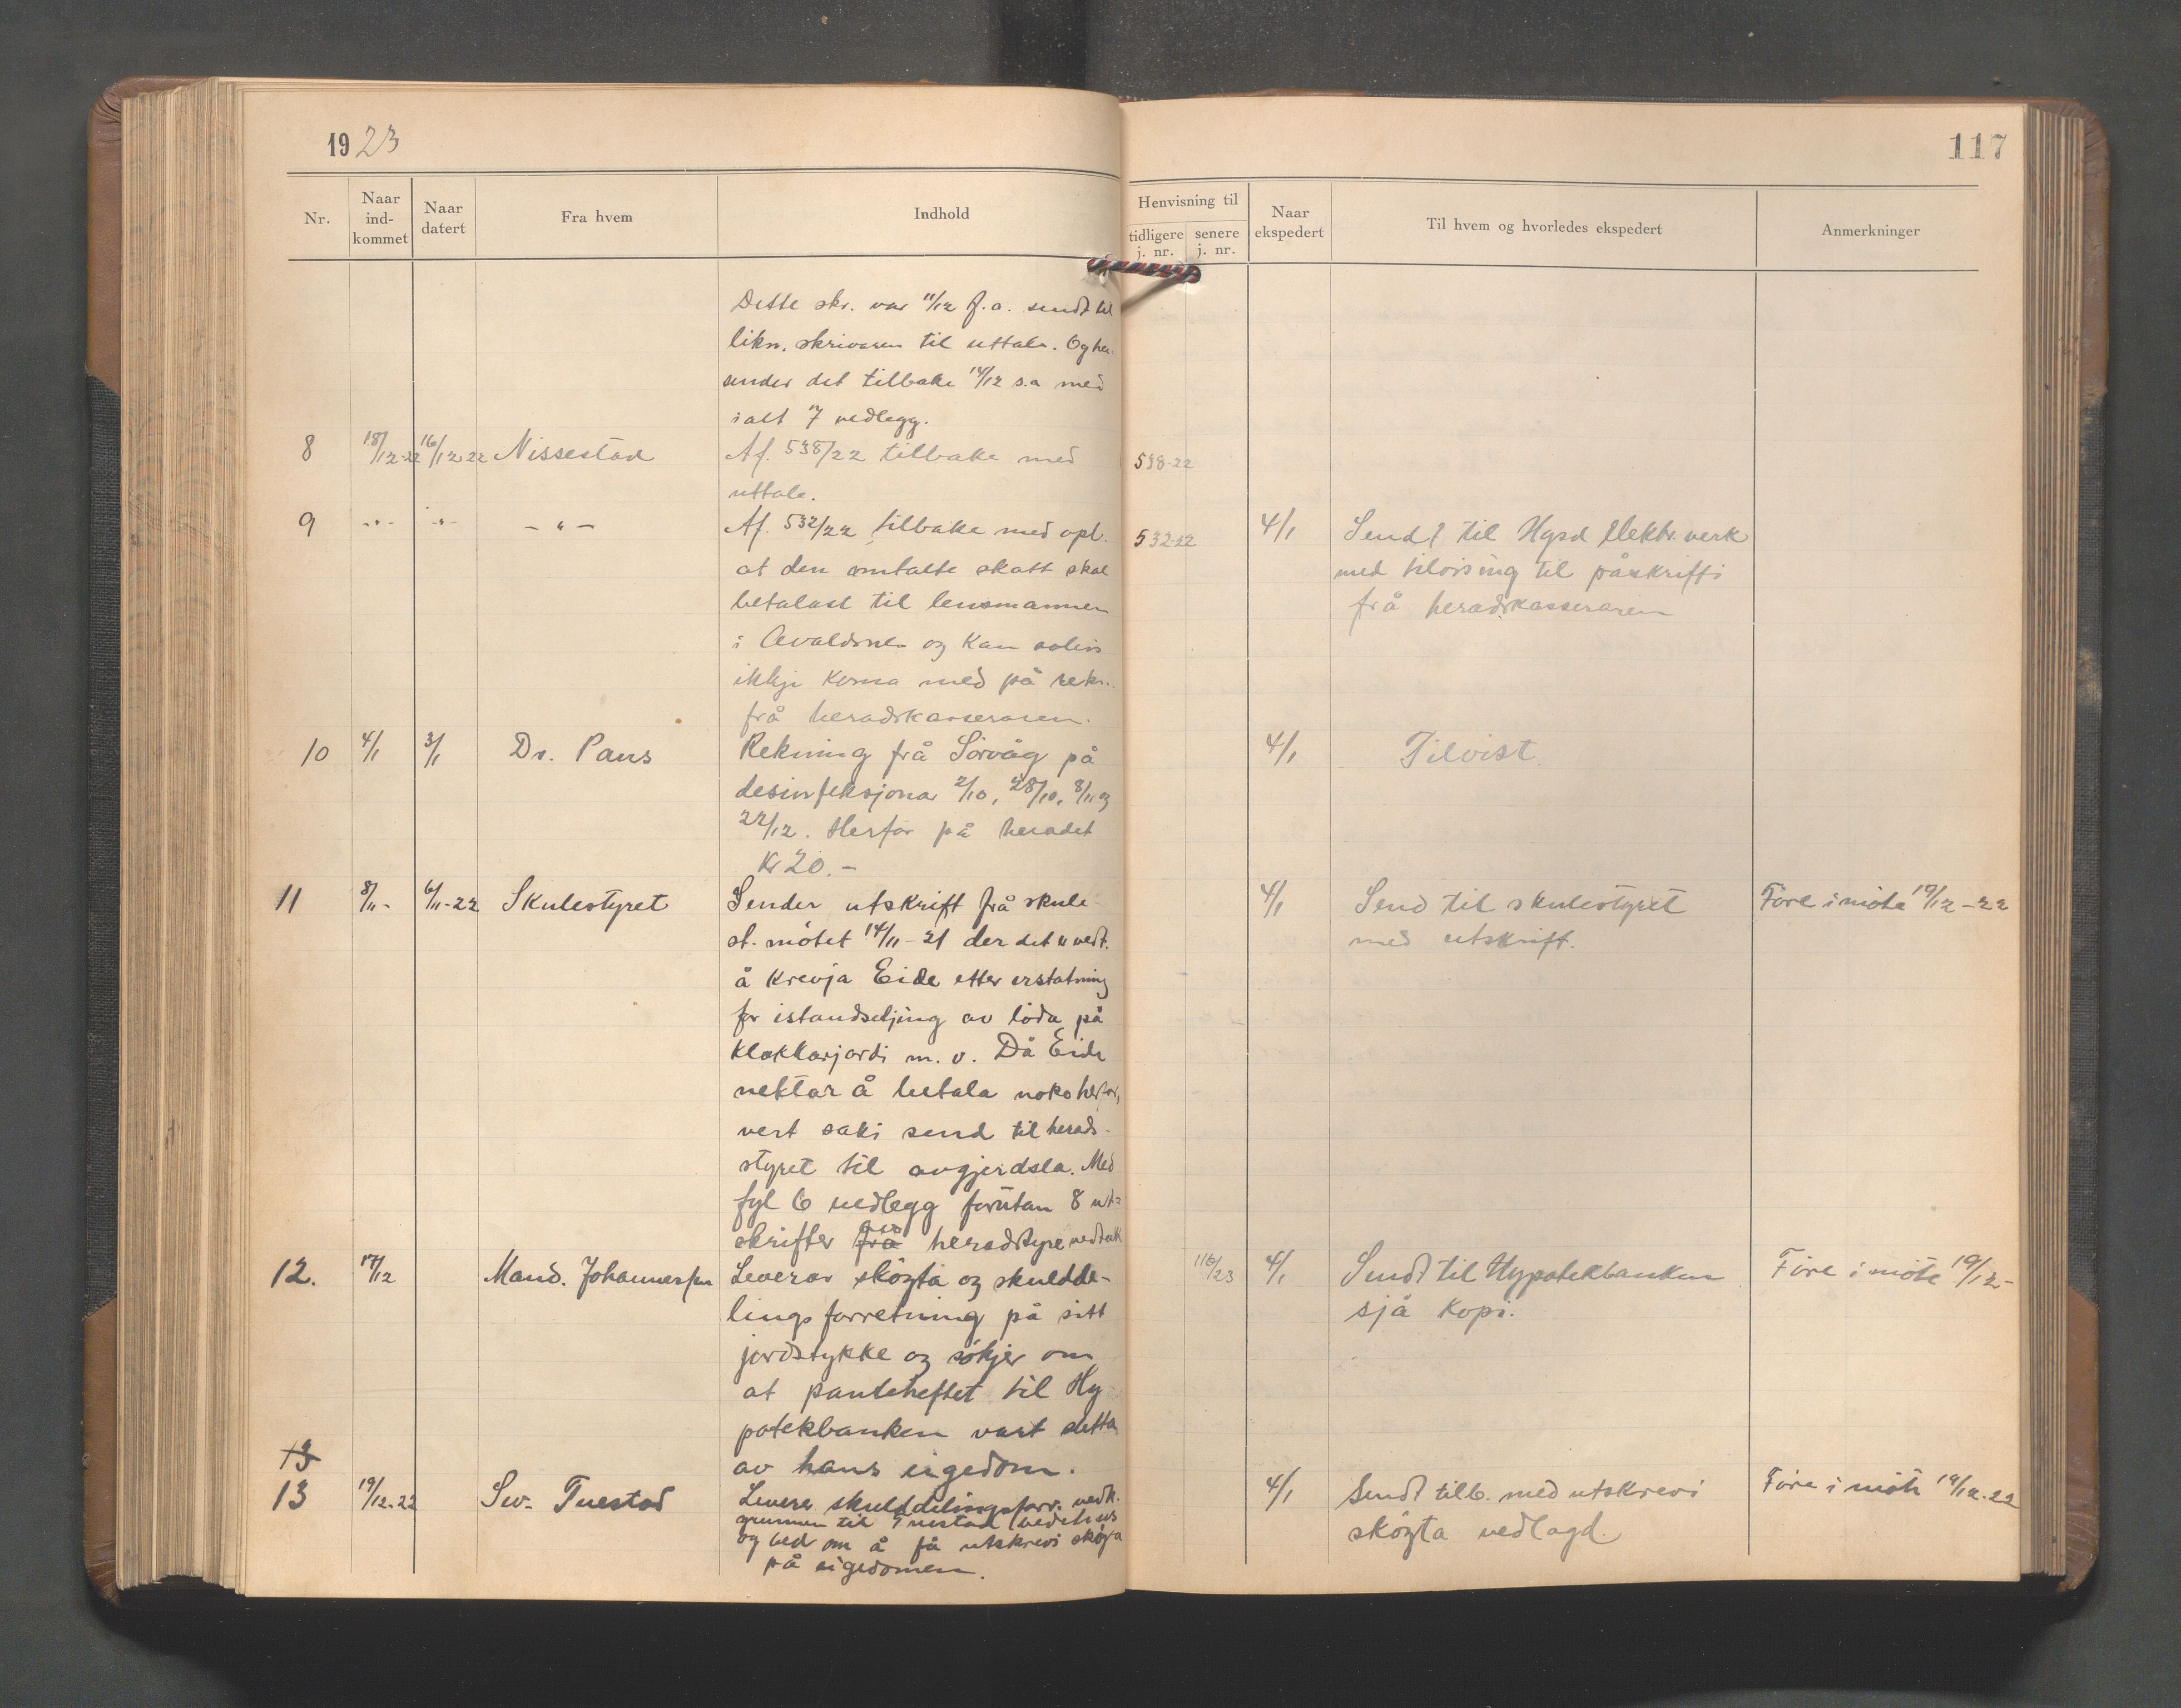 1923
117
Nr.
Naar ind-kommet
Naar datert
Fra hvem
Indhold
Henvisning til
tidligere j. nr.
senere j. nr.
Naar ekspedert
Til hvem og hvorledes ekspedert
Anmerkninger
Dette skr. var 11/12 f.a. sendt til
likn. skrivaren til uttale. Og han
sender det tilbake 14/12 s.a med
ialt 7 vedlegg.
8 18/12-22 16/12 22 Nissestad Af. 538/22 tilbake med 538-22
uttale.
9 -"- -"- -"- Af. 532/22 tilbake med opl. 532-22 4/1 Sendt til Hgsd Elektr. verk
at den omtalte skatt skal med tilvising til påskrifti
betalast til lensmannen frå heradskasseraren
i Avaldsnes og kan soleis
ikkje koma med på rekn.
frå heradskasseraren.
10 4/1 3/1 Dr. Paus Rekning frå Sørvåg på 4/1 Tilvist.
desinfeksjona 2/10, 28/10, 8/11 og
22/12. Herfor på heradet
Kr 20.-
11 8/11- 6/11-22 Skulestyret Sender utskrift frå skule- 4/1 Send til skulestyret Føre i møte 19/12-22
st. møtet 14/11-21 der det er vedt. med utskrift.
å krevja Eide etter erstatning
for istandsetjing av løda på
Klokkarjordi m. v. Då Eide
nektar å betala noko herfor,
vert saki send til herads-
styret til avgjerdsla. Med
fyl 6 vedlegg forutan 8 ut-
skrifter frå heradstyrevedtak
12. 17/12 Mand. Johannessen Leverar skøyta og skuldde- 116/23 4/1 Sendt til Hypotekbanken Føre i møte 19/12-
lingsforretning på sitt sjå kopi.
jordstykke og søkjer om
at panteheftet til Hy-
potekbanken vert sletta
av hans eigedom.
13
13 19/12-22 Sv. Tuestad Leverer skulddelingsforr. vedk. 4/1 Sendt tilb. med utskrevi Føre i møte 19/12-22
grunnen til Tuestad bedehus skøyta vedlagd.
og bed om å få utskrevi skøyta
på eigedomen.